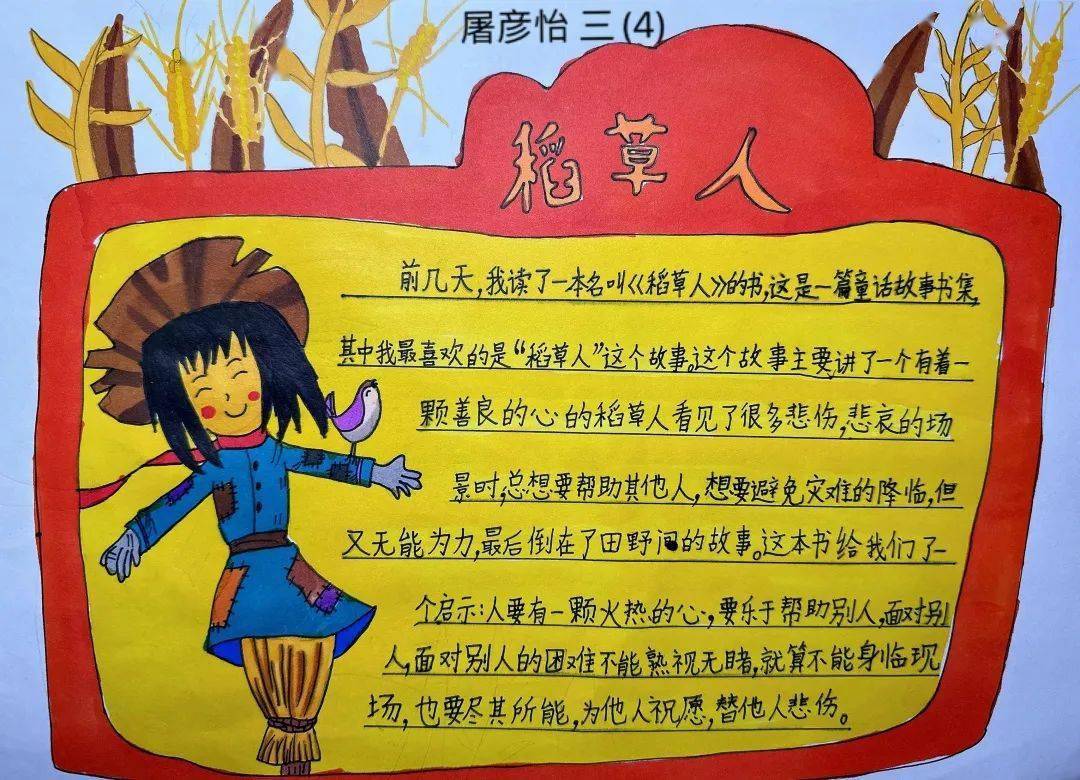 屠彦怡 三(4)
稻草人
前几天,我读了一本名叫《稻草人》的书,这是一篇童话故事书集,
其中我最喜欢的是“稻草人”这个故事。这个故事主要讲了一个有着一
颗善良的心的稻草人看见了很多悲伤,悲哀的场
景时,总想要帮助其他人,想要避免灾难的降临,但
又无能为力,最后倒在了田野间的故事。这本书给我们了一
个启示:人要有一颗火热的心,要乐于帮助别人,面对别
人,面对别人的困难不能熟视无睹,就算不能身临现
场,也要尽其所能,为他人祝愿,替他人悲伤。